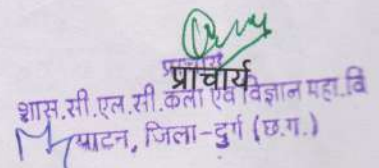 प्राचार्य
प्राचार्य
शास.सी.एल.सी.कला एवं विज्ञान महा.वि
पाटन, जिला-दुर्ग (छ.ग.)